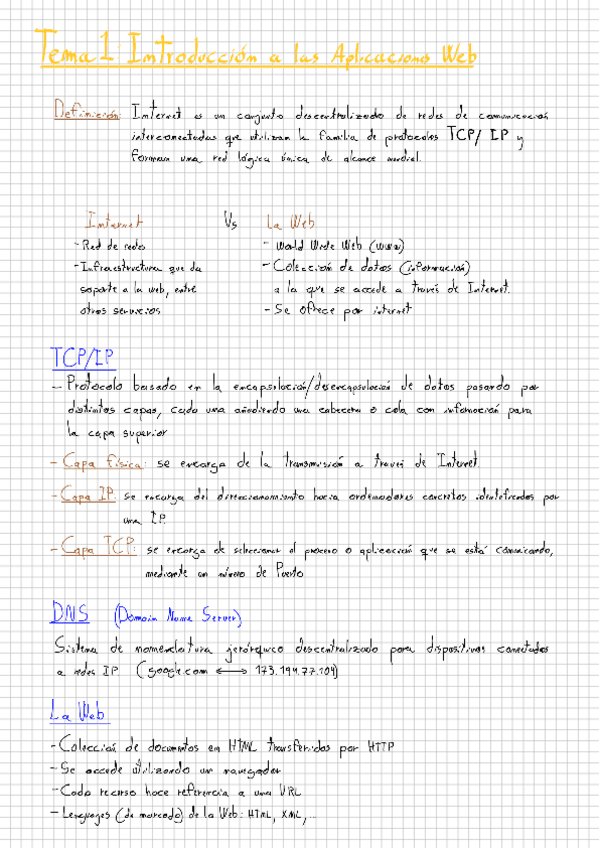 Tema 1: Introducción a las Aplicaciones Web
Definición: Internet es un conjunto descentralizado de redes de comunicación
interconectadas que utilizan la familia de protocolos TCP/IP y
forman una red lógica única de alcance mundial.
Internet Vs La Web
- Red de redes
- Infraestructura que da
soporte a la web, entre
otros servicios
- World Wide Web (www)
- Colección de datos (información)
a la que se accede a través de Internet.
- Se ofrece por internet
TCP/IP
- Protocolo basado en la encapsulación/desencapsulación de datos pasando por
distintas capas, cada una añadiendo una cabecera o cola con información para
la capa superior
- Capa física: se encarga de la transmisión a través de Internet.
- Capa IP: se encarga del direccionamiento hacia ordenadores concretos identificados por
una IP.
- Capa TCP: se encarga de seleccionar el proceso o aplicación que se está comunicando,
mediante un número de Puerto
DNS (Domain Name Server)
Sistema de nomenclatura jerárquico descentralizado para dispositivos conectados
a redes IP. (google.com ⟷ 173.194.77.104)
La Web
- Colección de documentos en HTML transferidos por HTTP
- Se accede utilizando un navegador
- Cada recurso hace referencia a una URL
- Lenguajes (de marcado) de la Web: HTML, XML,...